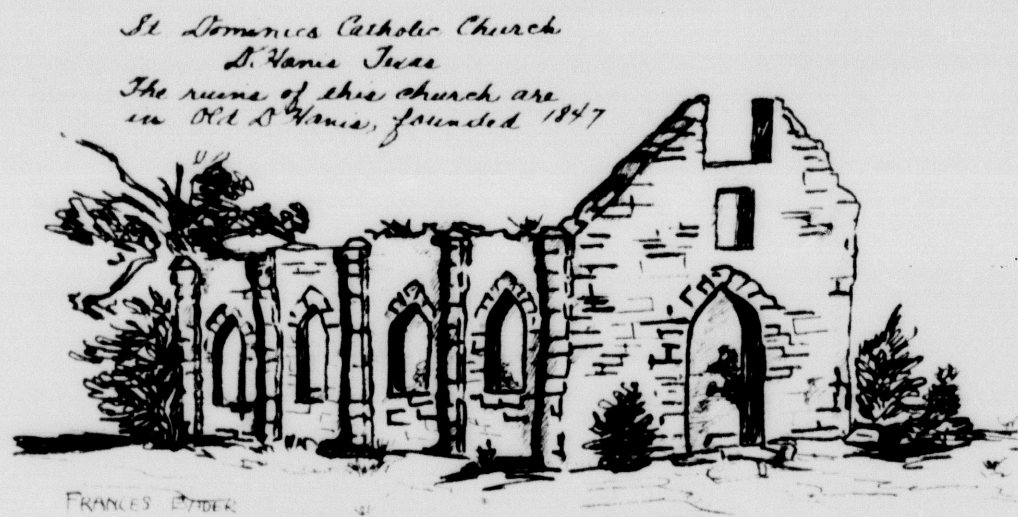 St Dominics Catholic Church
D'Hanis Texas
The ruins of this church are
in Old D'Hanis, founded 1847
FRANCES